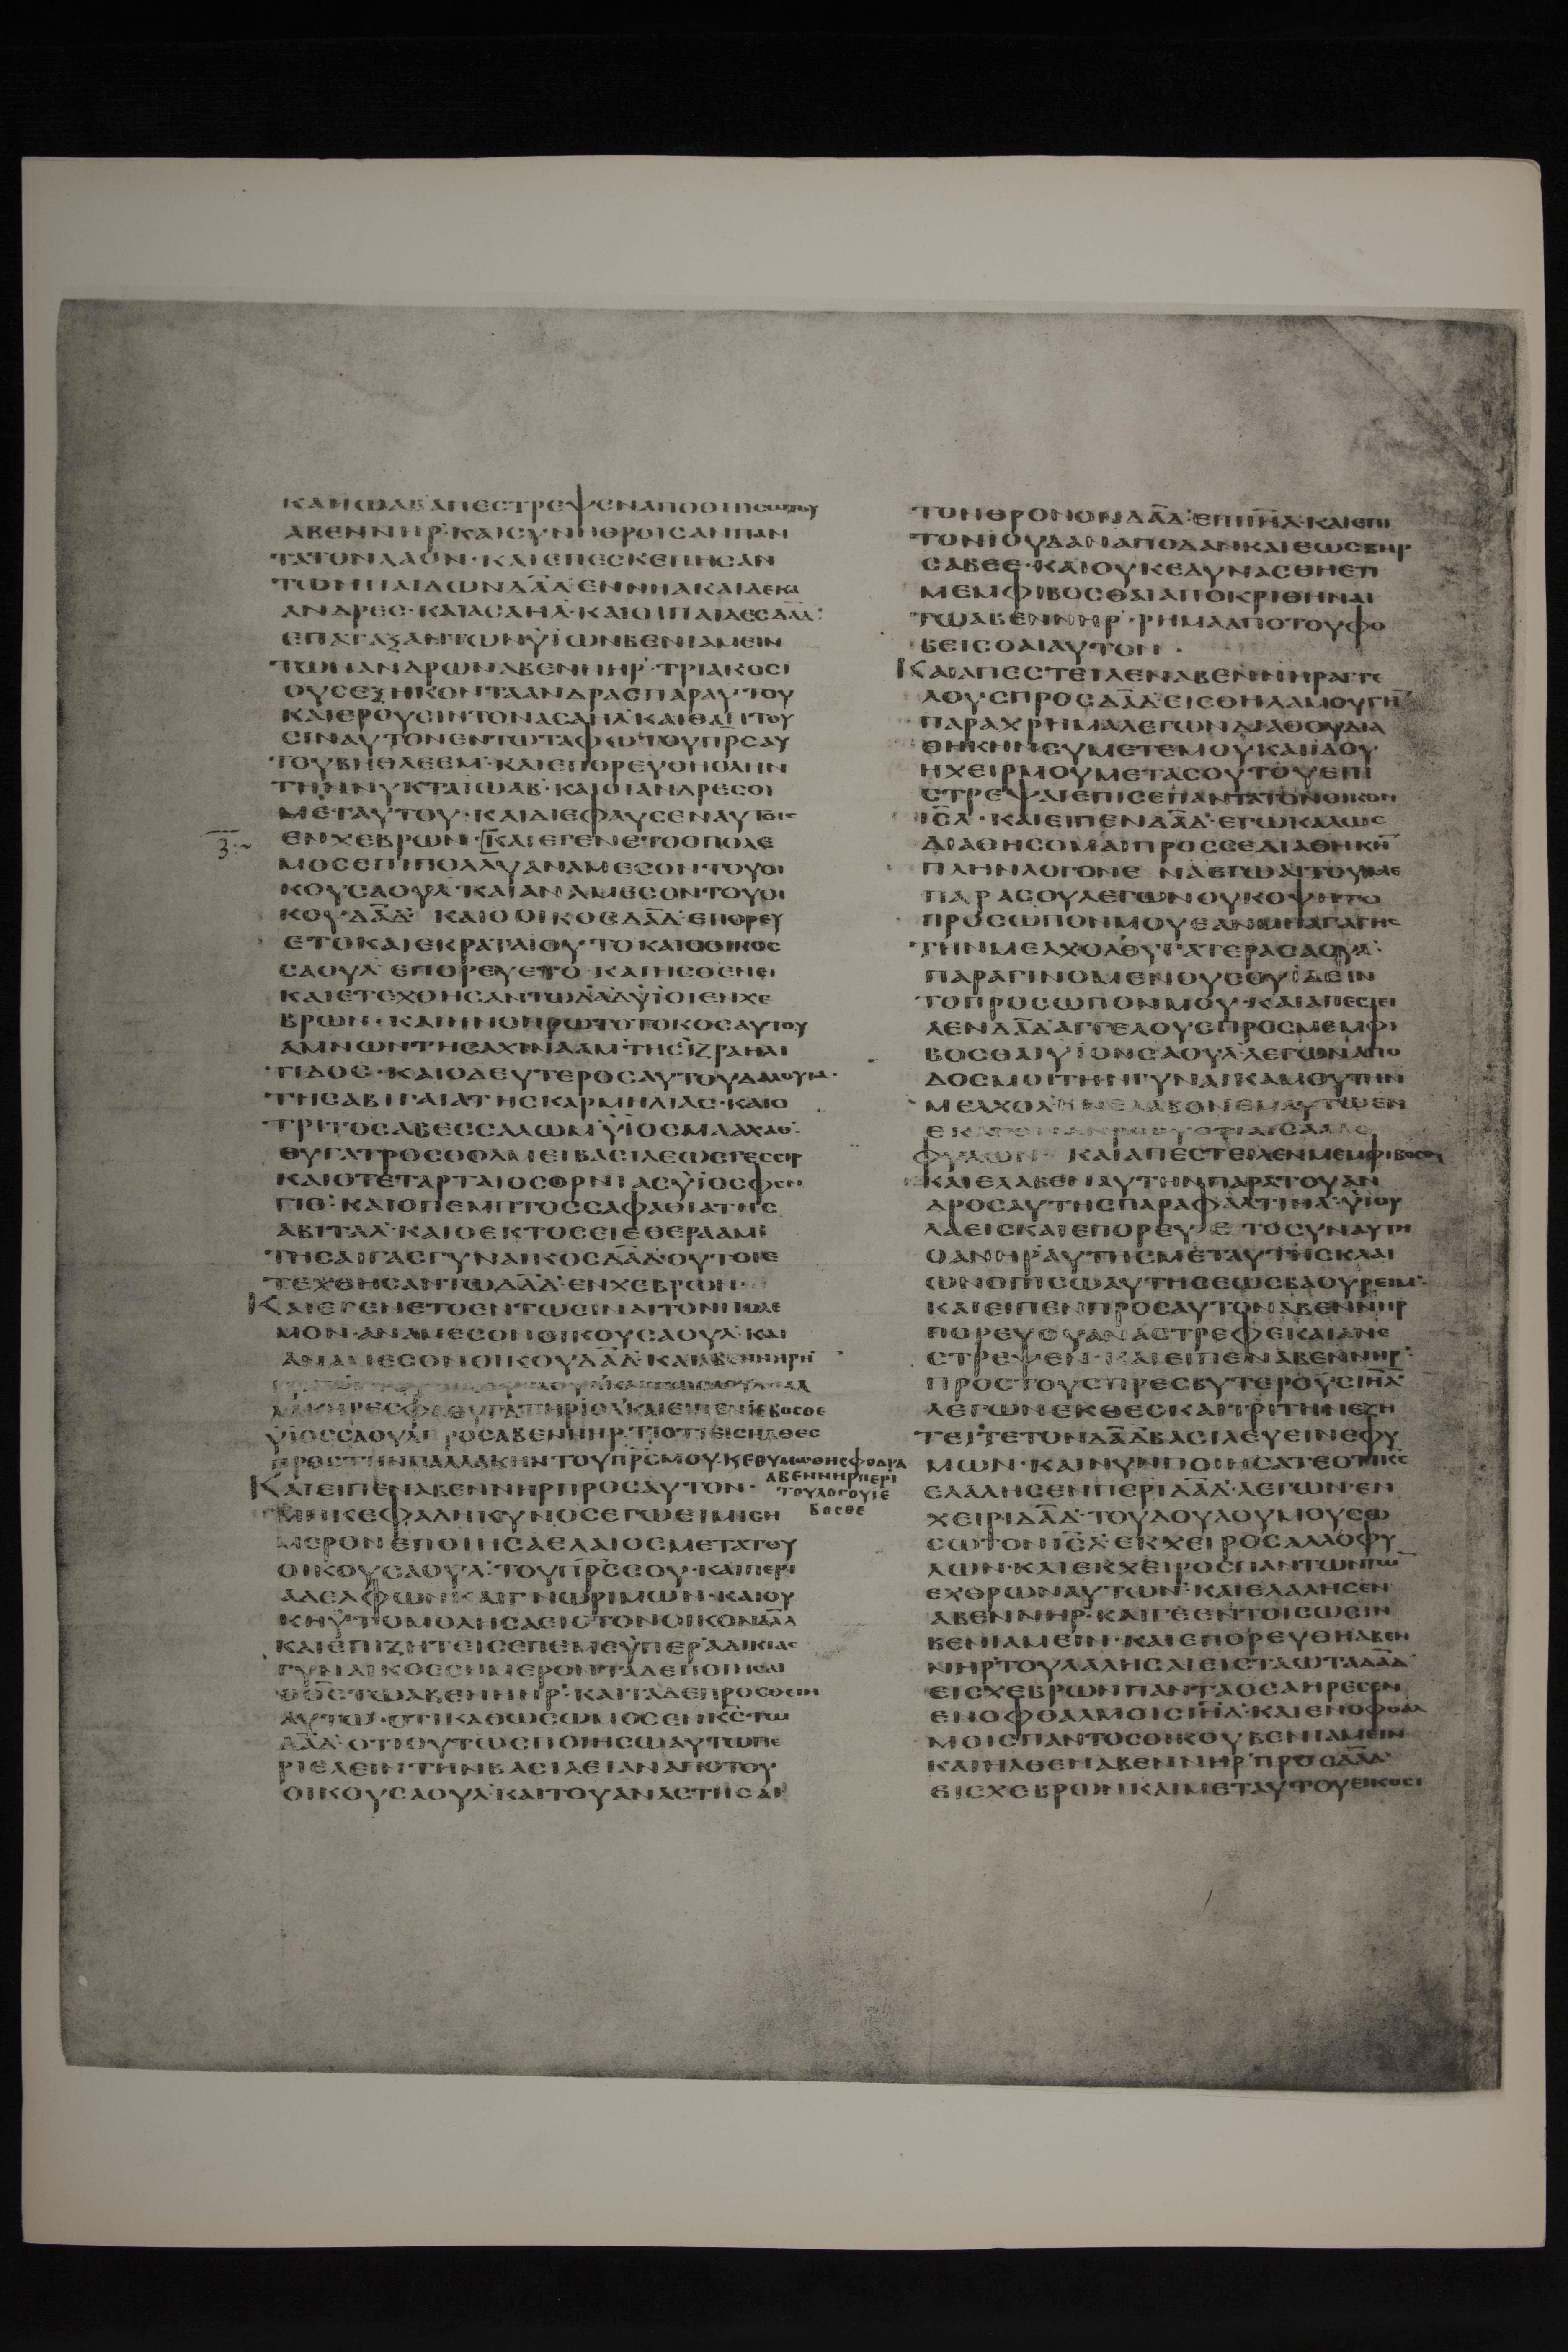 ΚΑΙΙΩΑΒΑΠΕСΤΡΕΨΕΝΑΠΟΟΠΙСΘΕΤΟΥ
ΑΒΕΝΝΗΡ·ΚΑΙСΥΝΗΘΡΟΙСΑΝΠΑΝ
ΤΑΤΟΝΛΑΟΝ·ΚΑΙΕΠΕСΚΕΠΗСΑΝ
ΤΩΝΠΑΙΔΩΝΔΑΔ ΕΝΝΗΑΚΑΙΔΕΚΑ
ΑΝΔΡΕС·ΚΑΙΑСΑΗΛ·ΚΑΙΟΙΠΑΙΔΕСΔΑΔ
ΕΠΑΤΑΞΑΝΤΩΝΥΙΩΝΒΕΝΙΑΜΕΙΝ
ΤΩΝΑΝΔΡΩΝΑΒΕΝΝΗΡ·ΤΡΙΑΚΟСΙ
ΟΥСΕΞΗΚΟΝΤΑΑΝΔΡΑСΠΑΡΑΥΤΟΥ
ΚΑΙΕΡΟΥСΙΝΤΟΝΑСΑΗΛ·ΚΑΙΘΑΠΤΟΥ
СΙΝΑΥΤΟΝΕΝΤΩΤΑΦΩΤΟΥΠΡСΑΥ
ΤΟΥΒΗΘΛΕΕΜ·ΚΑΙΕΠΟΡΕΥΘΗΟΛΗΝ
ΤΗΝΝΥΚΤΑΙΩΑΒ·ΚΑΙΟΙΑΝΔΡΕСΟΙ
ΜΕΤΑΥΤΟΥ·ΚΑΙΔΙΕΦΑΥСΕΝΑΥΤΟΙС
ΕΝΧΕΒΡΩΝ·[ΚΑΙΕΓΕΝΕΤΟΟΠΟΛΕ
ΜΟСΕΠΙΠΟΛΛΥΑΝΑΜΕСΟΝΤΟΥΟΙ
ΚΟΥСΑΟΥΛ·ΚΑΙΑΝΑΜΕСΟΝΤΟΥΟΙ
ΚΟΥΔΑΔ ΚΑΙΟΟΙΚΟСΔΑΔ·ΕΠΟΡΕΥ
ΕΤΟΚΑΙΕΚΡΑΤΑΙΟΥΤΟΚΑΙΟΟΙΚΟС
СΑΟΥΛ ΕΠΟΡΕΥΕΤΟ ΚΑΙΗСΘΕΝΕΙ
ΚΑΙΕΤΕΧΘΗСΑΝΤΩΔΑΔΥΙΟΙΕΝΧΕ
ΒΡΩΝ·ΚΑΙΗΝΟΠΡΩΤΟΤΟΚΟСΑΥΤΟΥ
ΑΜΝΩΝΤΗСΑΧΙΝΑΑΜ·ΤΗСΙΖΡΑΗΛΙ
ΤΙΔΟС·ΚΑΙΟΔΕΥΤΕΡΟСΑΥΤΟΥΔΑΛΟΥΙΑ·
ΤΗСΑΒΙΓΑΙΑΤΗСΚΑΡΜΗΛΙΑС·ΚΑΙΟ
ΤΡΙΤΟСΑΒΕССΑΛΩΜΥΙΟСΜΑΑΧΑΘ·
ΘΥΓΑΤΡΟСΘΟΛΜΕΙΒΑСΙΛΕΩСΓΕССΙΡ
ΚΑΙΟΤΕΤΑΡΤΑΙΟСΟΡΝΙΑСΥΙΟСΦΕΝ
ΓΙΘ·ΚΑΙΟΠΕΜΠΤΟССΑΦΑΘΙΑΤΗС
ΑΒΙΤΑΛ·ΚΑΙΟΕΚΤΟСΕΙΕΘΕΡΑΑΜ
ΤΗСΑΙΓΑСΓΥΝΑΙΚΟСΔΑΔ·ΟΥΤΟΙΕ
ΤΕΧΘΗСΑΝΤΩΔΑΔ·ΕΝΧΕΒΡΩΝ·
ΚΑΙΕΓΕΝΕΤΟΕΝΤΩΕΙΝΑΙΤΟΝΠΟΛΕ
ΜΟΝ·ΑΝΑΜΕСΟΝΟΙΚΟΥСΑΟΥΛ·ΚΑΙ
ΑΝΑΜΕСΟΝΟΙΚΟΥΔΑΔ·ΚΑΙΑΒΕΝΝΗΡΗ
ΥΙΟССΑΟΥΛΠΡΟСΑΒΕΝΝΗΡ·ΤΙΟΤΙΕΙСΗΛΘΕС
ΠΡΟСΤΗΝΠΑΛΛΑΚΗΝΤΟΥΠΡСΜΟΥ·ΚΕΘΥΜΩΘΗСΦΟΔΡΑ
ΑΒΕΝΝΗΡΠΕΡΙ
ΤΟΥΛΟΓΟΥΙΕ
ΒΟСΘΕ
ΚΑΙΕΙΠΕΝΑΒΕΝΝΗΡΠΡΟСΑΥΤΟΝ·
ΜΗΚΕΦΑΛΗΚΥΝΟСΕΓΩΕΙΜΙСΗ
ΜΕΡΟΝΕΠΟΙΗСΑΕΛΑΙΟСΜΕΤΑΤΟΥ
ΟΙΚΟΥСΑΟΥΛ·ΤΟΥΠΡССΟΥ·ΚΑΙΠΕΡΙ
ΑΔΕΛΦΩΝΚΑΙΓΝΩΡΙΜΩΝ·ΚΑΙΟΥ
ΚΗΥΤΟΜΟΛΗСΑΕΙСΤΟΝΟΙΚΟΝΔΑΔ
ΚΑΙΕΠΙΖΗΤΕΙСΕΠΕΜΕΥΠΕΡΑΔΙΚΙΑС
ΓΥΝΑΙΚΟССΗΜΕΡΟΝΤΑΔΕΠΟΙΗСΑΙ
ΘСΤΩΑΒΕΝΝΗΡ·ΚΑΙΤΑΔΕΠΡΟСΘΕΙΗ
ΑΥΤΩ·ΟΤΙΚΑΘΩСΩΜΟСΕΝΚСΤΩ
ΔΑΔ·ΟΤΙΟΥΤΩСΠΟΙΗСΩΑΥΤΩΠΕ
ΡΙΕΛΕΙΝΤΗΝΒΑСΙΛΕΙΑΝΑΠΟΤΟΥ
ΟΙΚΟΥСΑΟΥΛ·ΚΑΙΤΟΥΑΝΑСΤΗСΑΙ
ΤΟΝΘΡΟΝΟΝΔΑΔ·ΕΠΙΙΗΛ·ΚΑΙΕΠΙ
ΤΟΝΙΟΥΔΑΝΑΠΟΔΑΝΚΑΙΕΩСΒΗΡ
СΑΒΕΕ·ΚΑΙΟΥΚΕΔΥΝΑСΘΗΕΠ
ΜΕΜΦΙΒΟСΘΑΙΑΠΟΚΡΙΘΗΝΑΙ
ΤΩΑΒΕΝΝΗΡ·ΡΗΜΑΑΠΟΤΟΥΦΟ
ΒΕΙСΘΑΙΑΥΤΟΝ·
ΚΑΙΑΠΕСΤΕΙΛΕΝΑΒΕΝΝΗΡΑΓΓΕ
ΛΟΥСΠΡΟСΔΑΔ·ΕΙСΘΗΛΑΜΟΥΓΗ
ΠΑΡΑΧΡΗΜΑΛΕΓΩΝΔΙΑΘΟΥΔΙΑ
ΘΗΚΗΝСΥΜΕΤΕΜΟΥΚΑΙΙΔΟΥ
ΗΧΕΙΡΜΟΥΜΕΤΑСΟΥΤΟΥΕΠΙ
СΤΡΕΨΑΙΕΠΙСΕΠΑΝΤΑΤΟΝΟΙΚΟΝ
ΙСΛ·ΚΑΙΕΙΠΕΝΔΑΔ·ΕΓΩΚΑΛΩС
ΔΙΑΘΗСΟΜΑΙΠΡΟССΕΔΙΑΘΗΚΗ
ΠΛΗΝΛΟΓΟΝΕ ΝΑΕΓΩΑΙΤΟΥΜΕ
ΠΑΡΑСΟΥΛΕΓΩΝΟΥΚΟΨΗΤΟ
ΠΡΟСΩΠΟΝΜΟΥΕΑΝΜΗΑΓΑΓΗС
ΤΗΝΜΕΛΧΟΛΘΥΓΑΤΕΡΑСΑΟΥΛ·
ΠΑΡΑΓΙΝΟΜΕΝΟΥСΟΥΙΔΕΙΝ
ΤΟΠΡΟСΩΠΟΝΜΟΥ·ΚΑΙΑΠΕСΤΕΙ
ΛΕΝΔΑΔ·ΑΓΓΕΛΟΥСΠΡΟСΜΕΜΦΙ
ΒΟСΘΑΙΥΙΟΝСΑΟΥΛ·ΛΕΓΩΝΑΠΟ
ΔΟСΜΟΙΤΗΝΓΥΝΑΙΚΑΜΟΥΤΗΝ
ΜΕΛΧΟΛ·ΗΝΕΛΑΒΟΝΕΜΑΥΤΩΕΝ
ΦΥΛΩΝ· ΚΑΙΑΠΕСΤΕΙΛΕΝΜΕΜΦΙΒΟСΘΑΙ
ΚΑΙΕΛΑΒΕΝΑΥΤΗΝΠΑΡΑΤΟΥΑΝ
ΔΡΟСΑΥΤΗСΠΑΡΑΦΑΛΤΙΗΛ·ΥΙΟΥ
ΛΑΕΙСΚΑΙΕΠΟΡΕΥΕΤΟСΥΝΑΥΤΗ
ΟΑΝΗΡΑΥΤΗСΜΕΤΑΥΤΗСΚΛΑΙ
ΩΝΟΠΙСΩΑΥΤΗСΕΩСΒΑΟΥΡΕΙΜ·
ΚΑΙΕΙΠΕΝΠΡΟСΑΥΤΟΝΑΒΕΝΝΗΡ
ΠΟΡΕΥΟΥΑΝΑСΤΡΕΦΕΚΑΙΑΝΕ
СΤΡΕΨΕΝ·ΚΑΙΕΙΠΕΝΑΒΕΝΝΗΡ·
ΠΡΟСΤΟΥСΠΡΕСΒΥΤΕΡΟΥСΙΗΛ
ΛΕΓΩΝΕΚΘΕСΚΑΙΤΡΙΤΗΝΕΖΗ
ΤΕΙΤΕΤΟΝΔΑΔΒΑСΙΛΕΥΕΙΝΕΦΥ
ΜΩΝ·ΚΑΙΝΥΝΠΟΙΗСΑΤΕΟΤΙΚС
ΕΛΑΛΗСΕΝΠΕΡΙΔΑΔ·ΛΕΓΩΝ·ΕΝ
ΧΕΙΡΙΔΑΔ·ΤΟΥΔΟΥΛΟΥΜΟΥСΩ
СΩΤΟΝΙСΛ·ΕΚΧΕΙΡΟСΑΛΛΟΦΥ
ΛΩΝ·ΚΑΙΕΚΧΕΙΡΟСΠΑΝΤΩΝΤΩ
ΕΧΘΡΩΝΑΥΤΩΝ·ΚΑΙΕΛΑΛΗСΕΝ
ΑΒΕΝΝΗΡ·ΚΑΙΓΕΕΝΤΟΙСΩСΙΝ
ΒΕΝΙΑΜΕΙΝ·ΚΑΙΕΠΟΡΕΥΘΗΑΒΕΝ
ΝΗΡΤΟΥΛΑΛΗСΑΙΕΙСΤΑΩΤΑΔΑΔ
ΕΙСΧΕΒΡΩΝΠΑΝΤΑΟСΑΗΡΕСΕΝ
ΕΝΟΦΘΑΛΜΟΙСΙΗΛ·ΚΑΙΕΝΟΦΘΑΛ
ΜΟΙСΠΑΝΤΟСΟΙΚΟΥΒΕΝΙΑΜΕΙΝ
ΚΑΙΗΛΘΕΝΑΒΕΝΝΗΡΠΡΟСΔΑΔ
ΕΙСΧΕΒΡΩΝΚΑΙΜΕΤΑΥΤΟΥΕΙΚΟСΙ